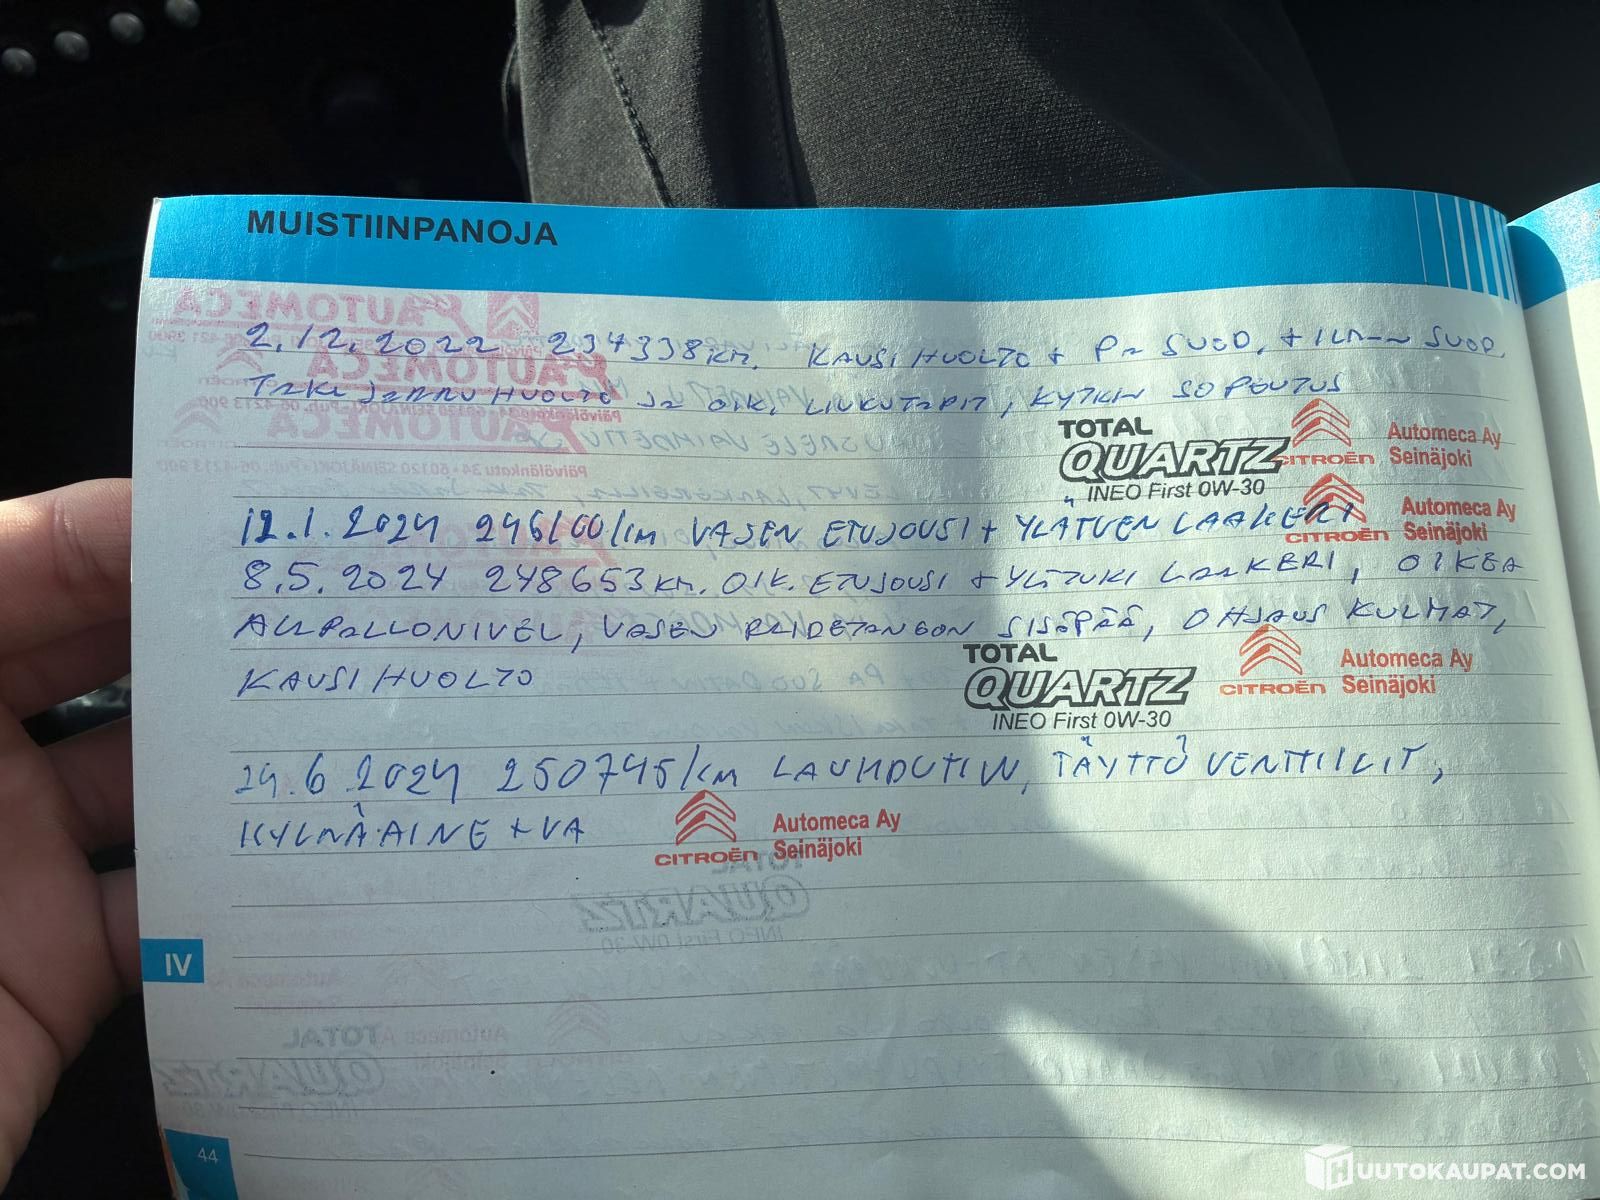 MUISTIINPANOJA
2.12.2022 234338KM. KAUSIHUOLTO + PA SUOD, + ILMAN SUOD,
TAKAJARRU HUOLTO JA OIK. LIUKUTAPIT, KYTKIN SOPEUTUS
TOTAL
QUARTZ
INEO First 0W-30
CITROËN
Automeca Ay
Seinäjoki
12.1.2024 246100/KM VASEN ETUJOUSI + YLÄTUEN LAAKERI
CITROËN
Automeca Ay
Seinäjoki
8.5.2024 248653KM. OIK. ETUJOUSI + YLÄTUKI LAAKERI, OIKEA
ALAPALLONIVEL, VASEN RAIDETANGON SISÄPÄÄ, OHJAUS KULMAT,
KAUSIHUOLTO
TOTAL
QUARTZ
INEO First 0W-30
CITROËN
Automeca Ay
Seinäjoki
24.6 2024 250745/KM LAUHDUTIN, TÄYTTÖ VENTTIILIT,
KYLMÄAINE + VA
CITROËN
Automeca Ay
Seinäjoki
IV
44
HUUTOKAUPAT.COM